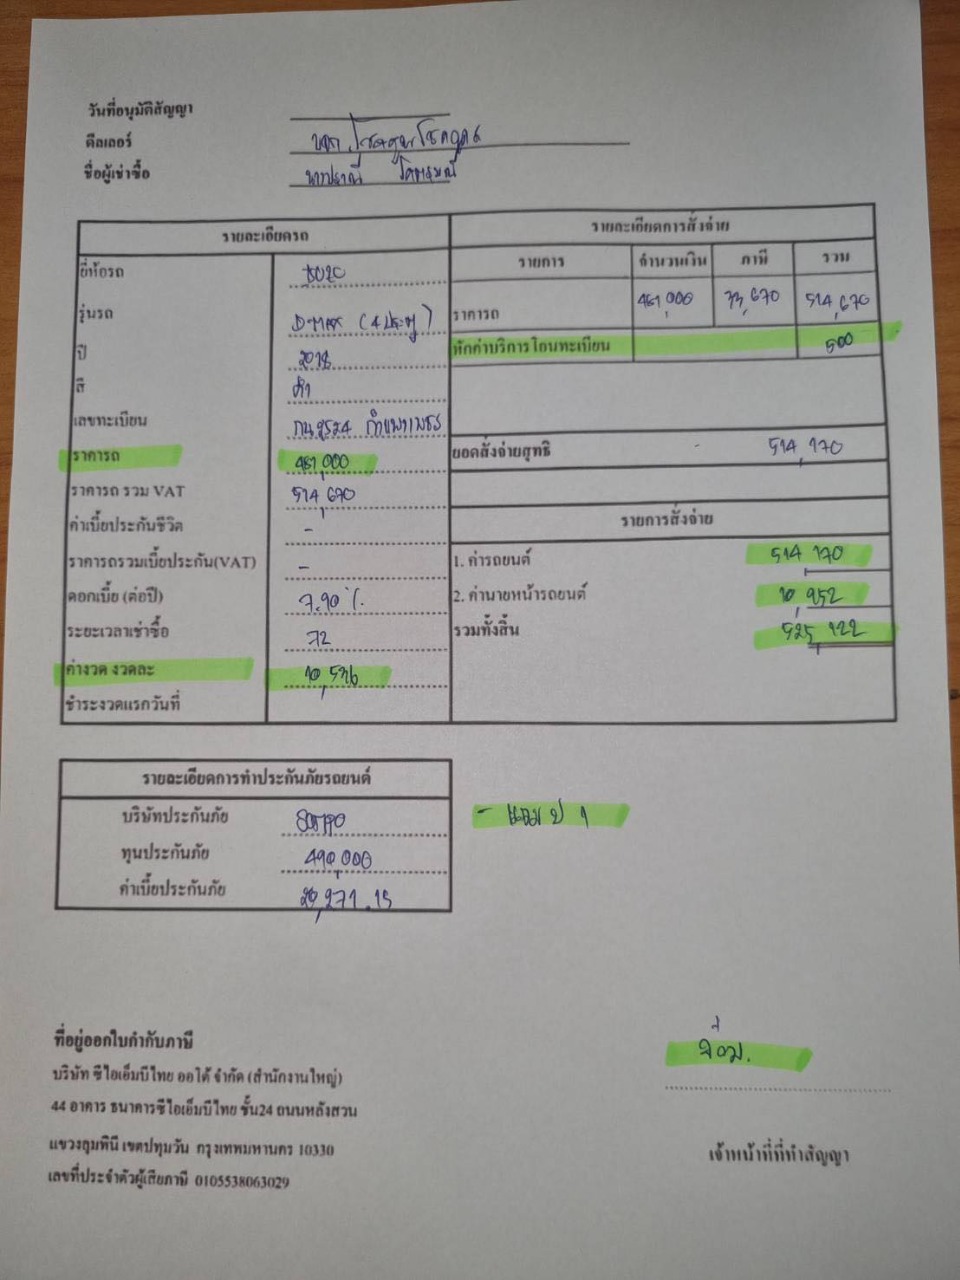 วันที่อนุมัติสัญญา
ดีลเลอร์
ชื่อผู้เช่าซื้อ
รายละเอียดรถ
ยี่ห้อรถ
รุ่นรถ D-MAX (4 ประตู)
ปี 2018
สี ดำ
เลขทะเบียน กำแพงเพชร
ราคารถ 481,000
ราคารถ รวม VAT 514,670
ค่าเบี้ยประกันชีวิต -
ราคารถรวมเบี้ยประกัน(VAT) -
ดอกเบี้ย (ต่อปี) 7.90 %
ระยะเวลาเช่าซื้อ 72
ค่างวด งวดละ
ชำระงวดแรกวันที่
รายละเอียดการสั่งจ่าย
รายการ จำนวนเงิน ภาษี รวม
ราคารถ 481,000 33,670 514,670
หักค่าบริการโอนทะเบียน 500
ยอดสั่งจ่ายสุทธิ - 514,170
รายการสั่งจ่าย
1. ค่ารถยนต์ 514,170
2. ค่านายหน้ารถยนต์ 10,952
รวมทั้งสิ้น 525,122
รายละเอียดการทำประกันภัยรถยนต์
บริษัทประกันภัย
ทุนประกันภัย 490,000
ค่าเบี้ยประกันภัย
- แถม ป 1
ที่อยู่ออกใบกำกับภาษี
บริษัท ซีไอเอ็มบีไทย ออโต้ จำกัด (สำนักงานใหญ่)
44 อาคาร ธนาคารซีไอเอ็มบีไทย ชั้น24 ถนนหลังสวน
แขวงลุมพินี เขตปทุมวัน กรุงเทพมหานคร 10330
เลขที่ประจำตัวผู้เสียภาษี 0105538063029
เจ้าหน้าที่ที่ทำสัญญา